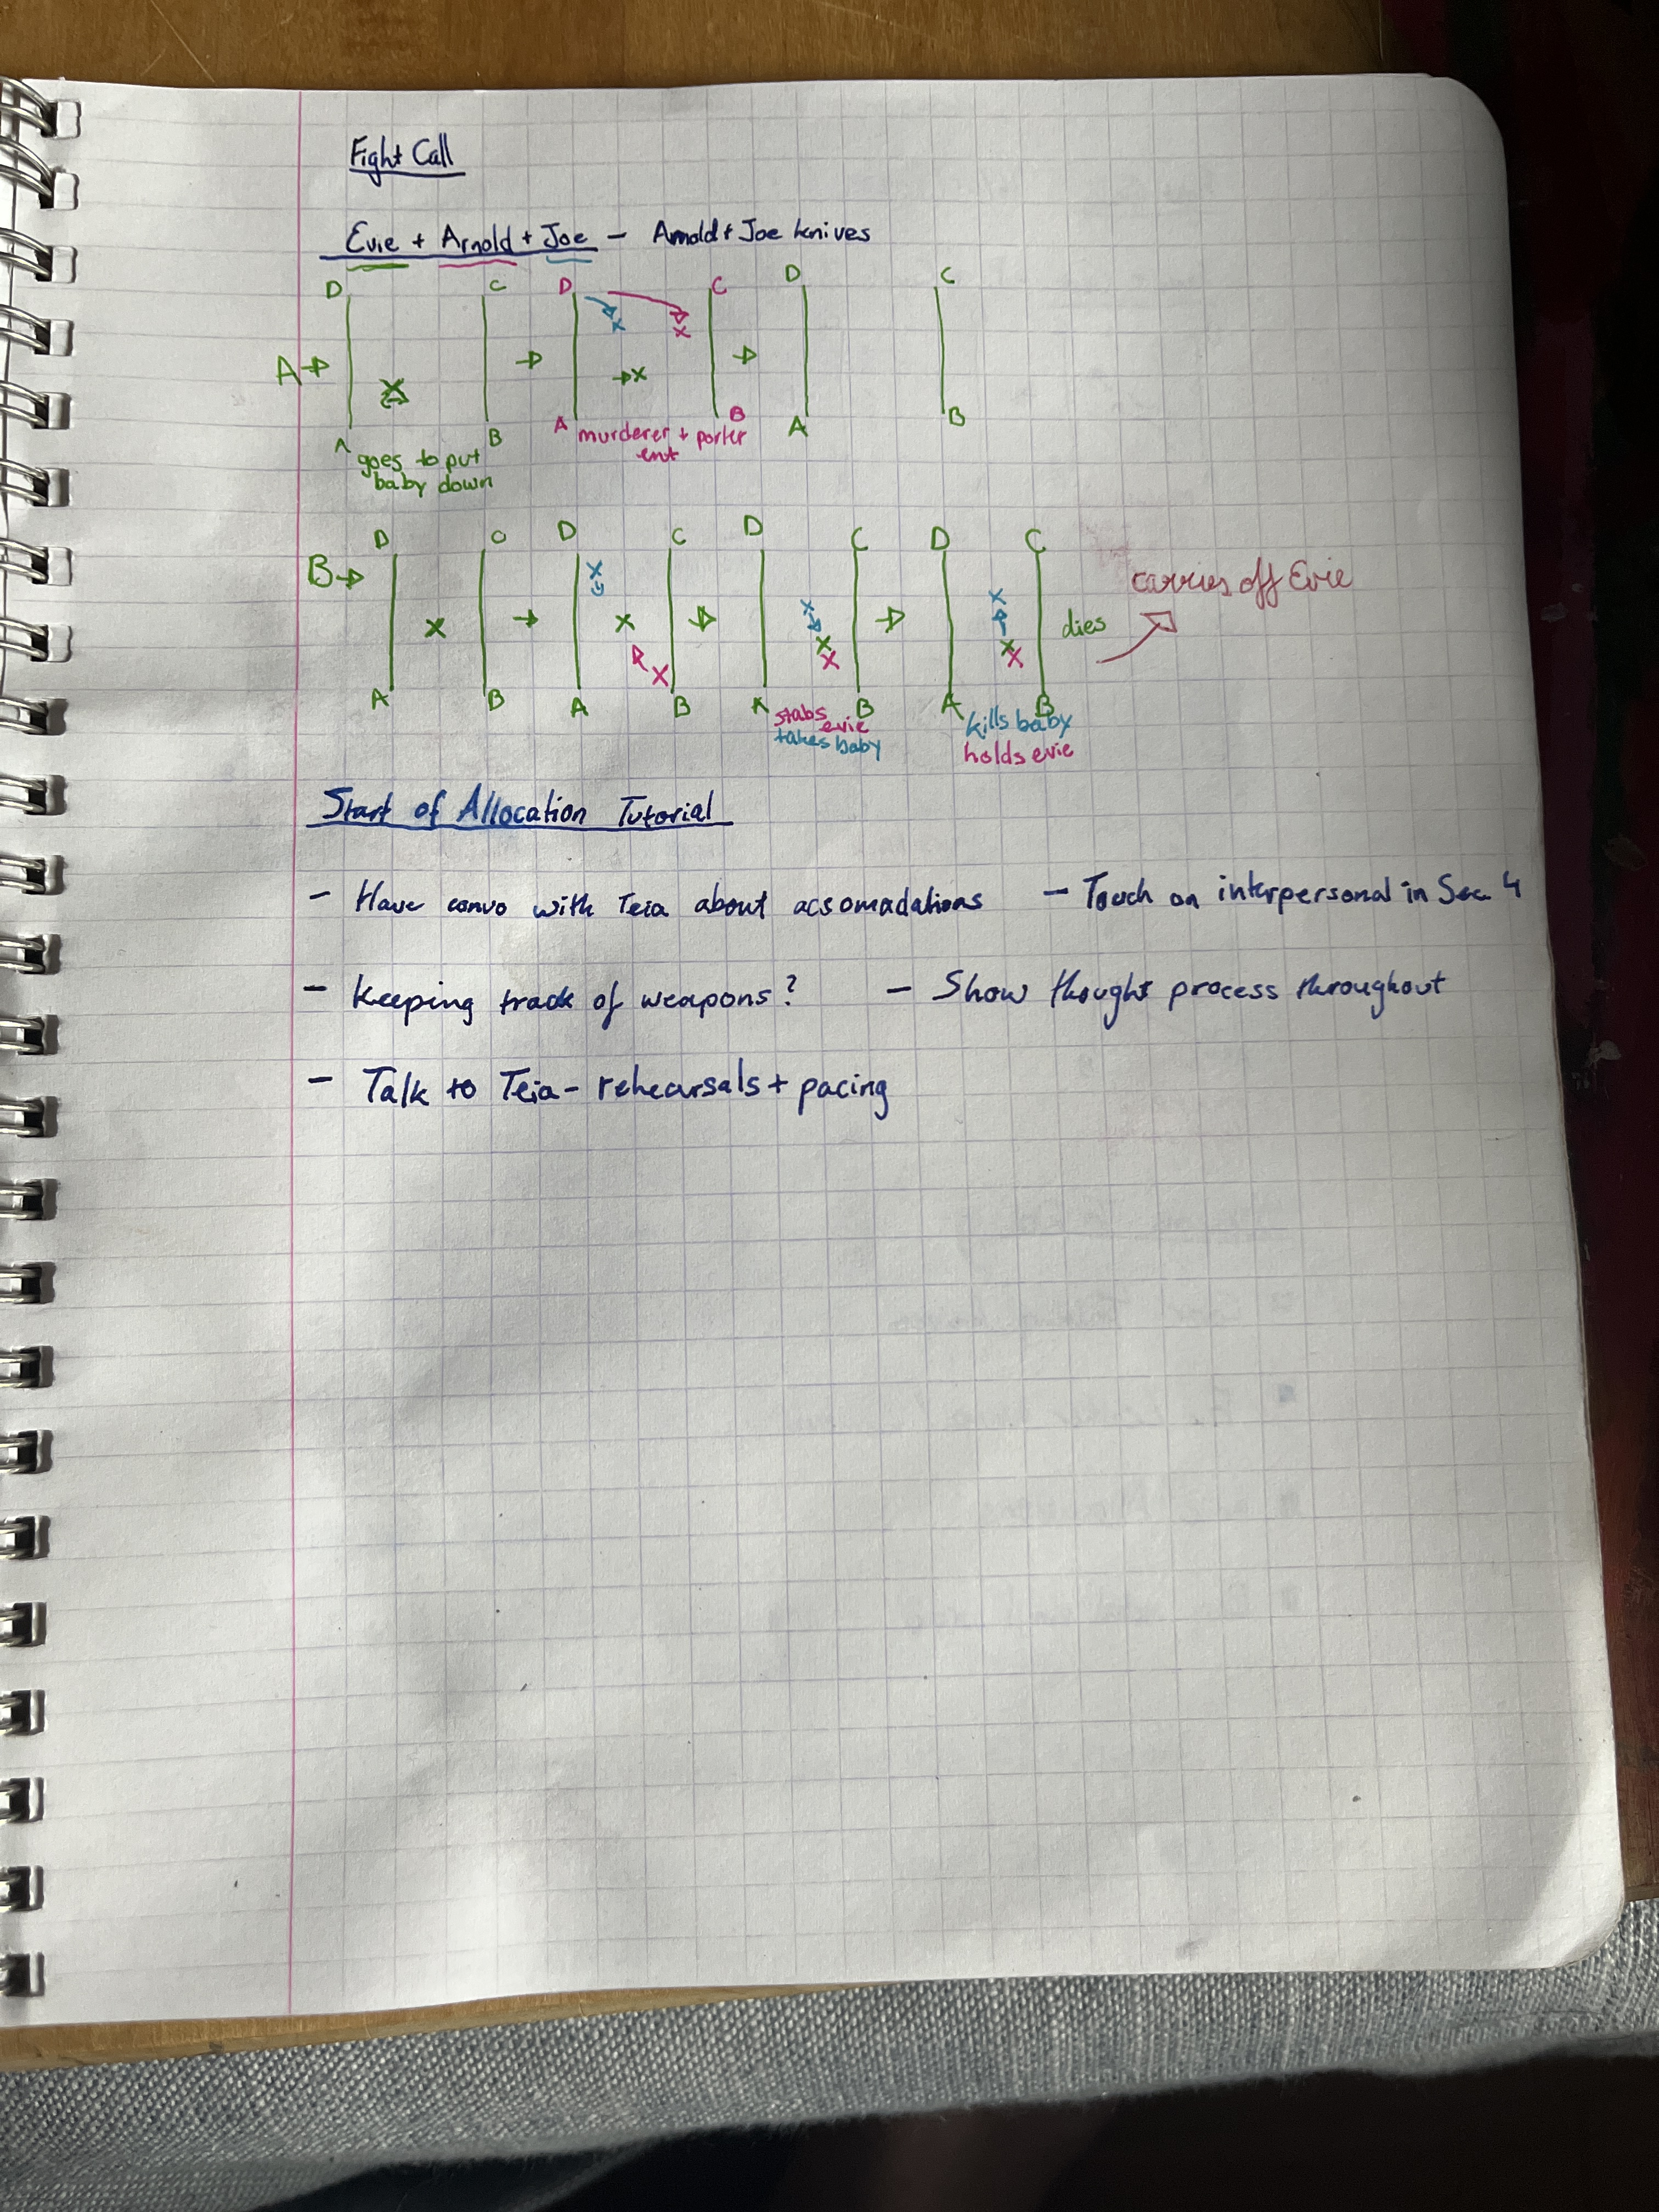 Fight Call
Evie + Arnold + Joe - Arnold + Joe knives
D C D C D C
A
x x x x
A B A B A B
goes to put
baby down
murderer + porter
ent
D C D C D C D C
B
x x x x x x x x x x
A B A B A B A B
dies
carries off Evie
stabs
evie
takes baby
kills baby
holds evie
Start of Allocation Tutorial
- Have convo with Teia about acsomadations - Touch on interpersonal in Sec 4
- Keeping track of weapons? - Show thought process throughout
- Talk to Teia - rehearsals + pacing